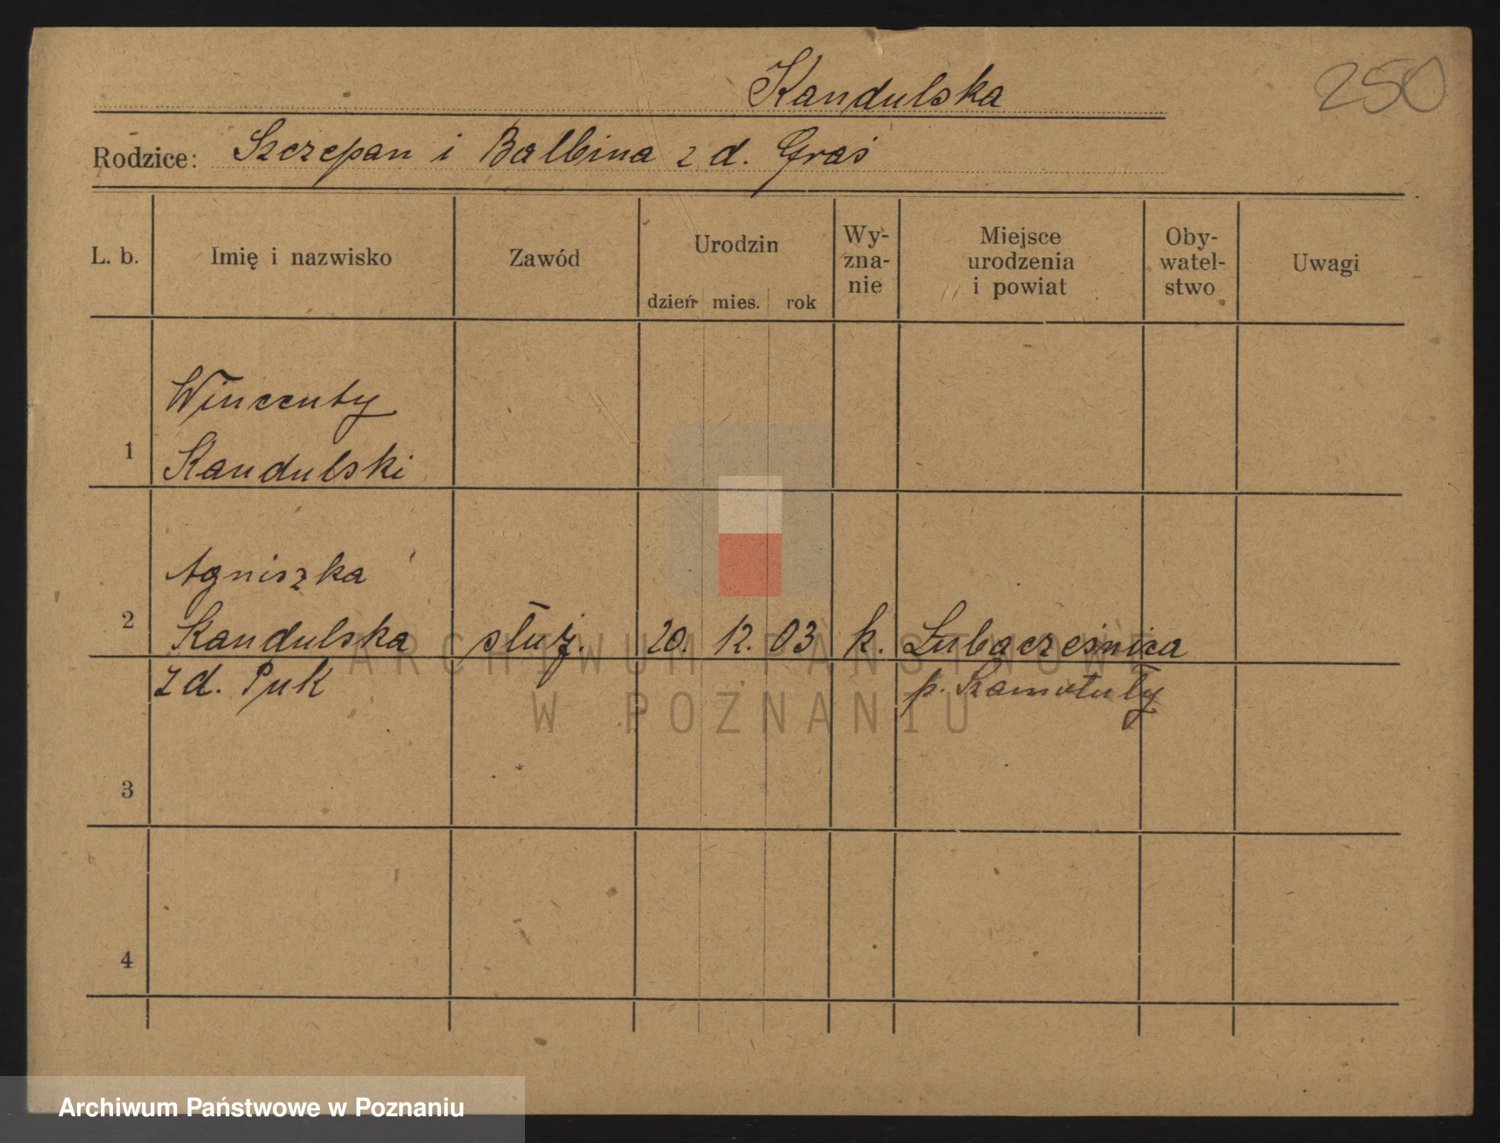 Kandulska
250
Rodzice: Szczepan i Balbina z d. Graś
L. b.
Imię i nazwisko
Zawód
Urodzin
dzień mies. rok
Wy-
zna-
nie
Miejsce
urodzenia
i powiat
Oby-
watel-
stwo
Uwagi
Wincenty
1 Kandulski
Agniszka
2 Kandulska służ. 20. 12. 03 k. Lubocześnica
z d. Puk p. Szamotuły
3
4
ARCHIWUM PAŃSTWOWE
W POZNANIU
Archiwum Państwowe w Poznaniu